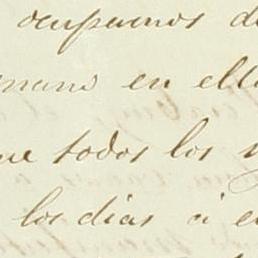 ocuparnos d
mano en ell
ue todos los
los dias á e